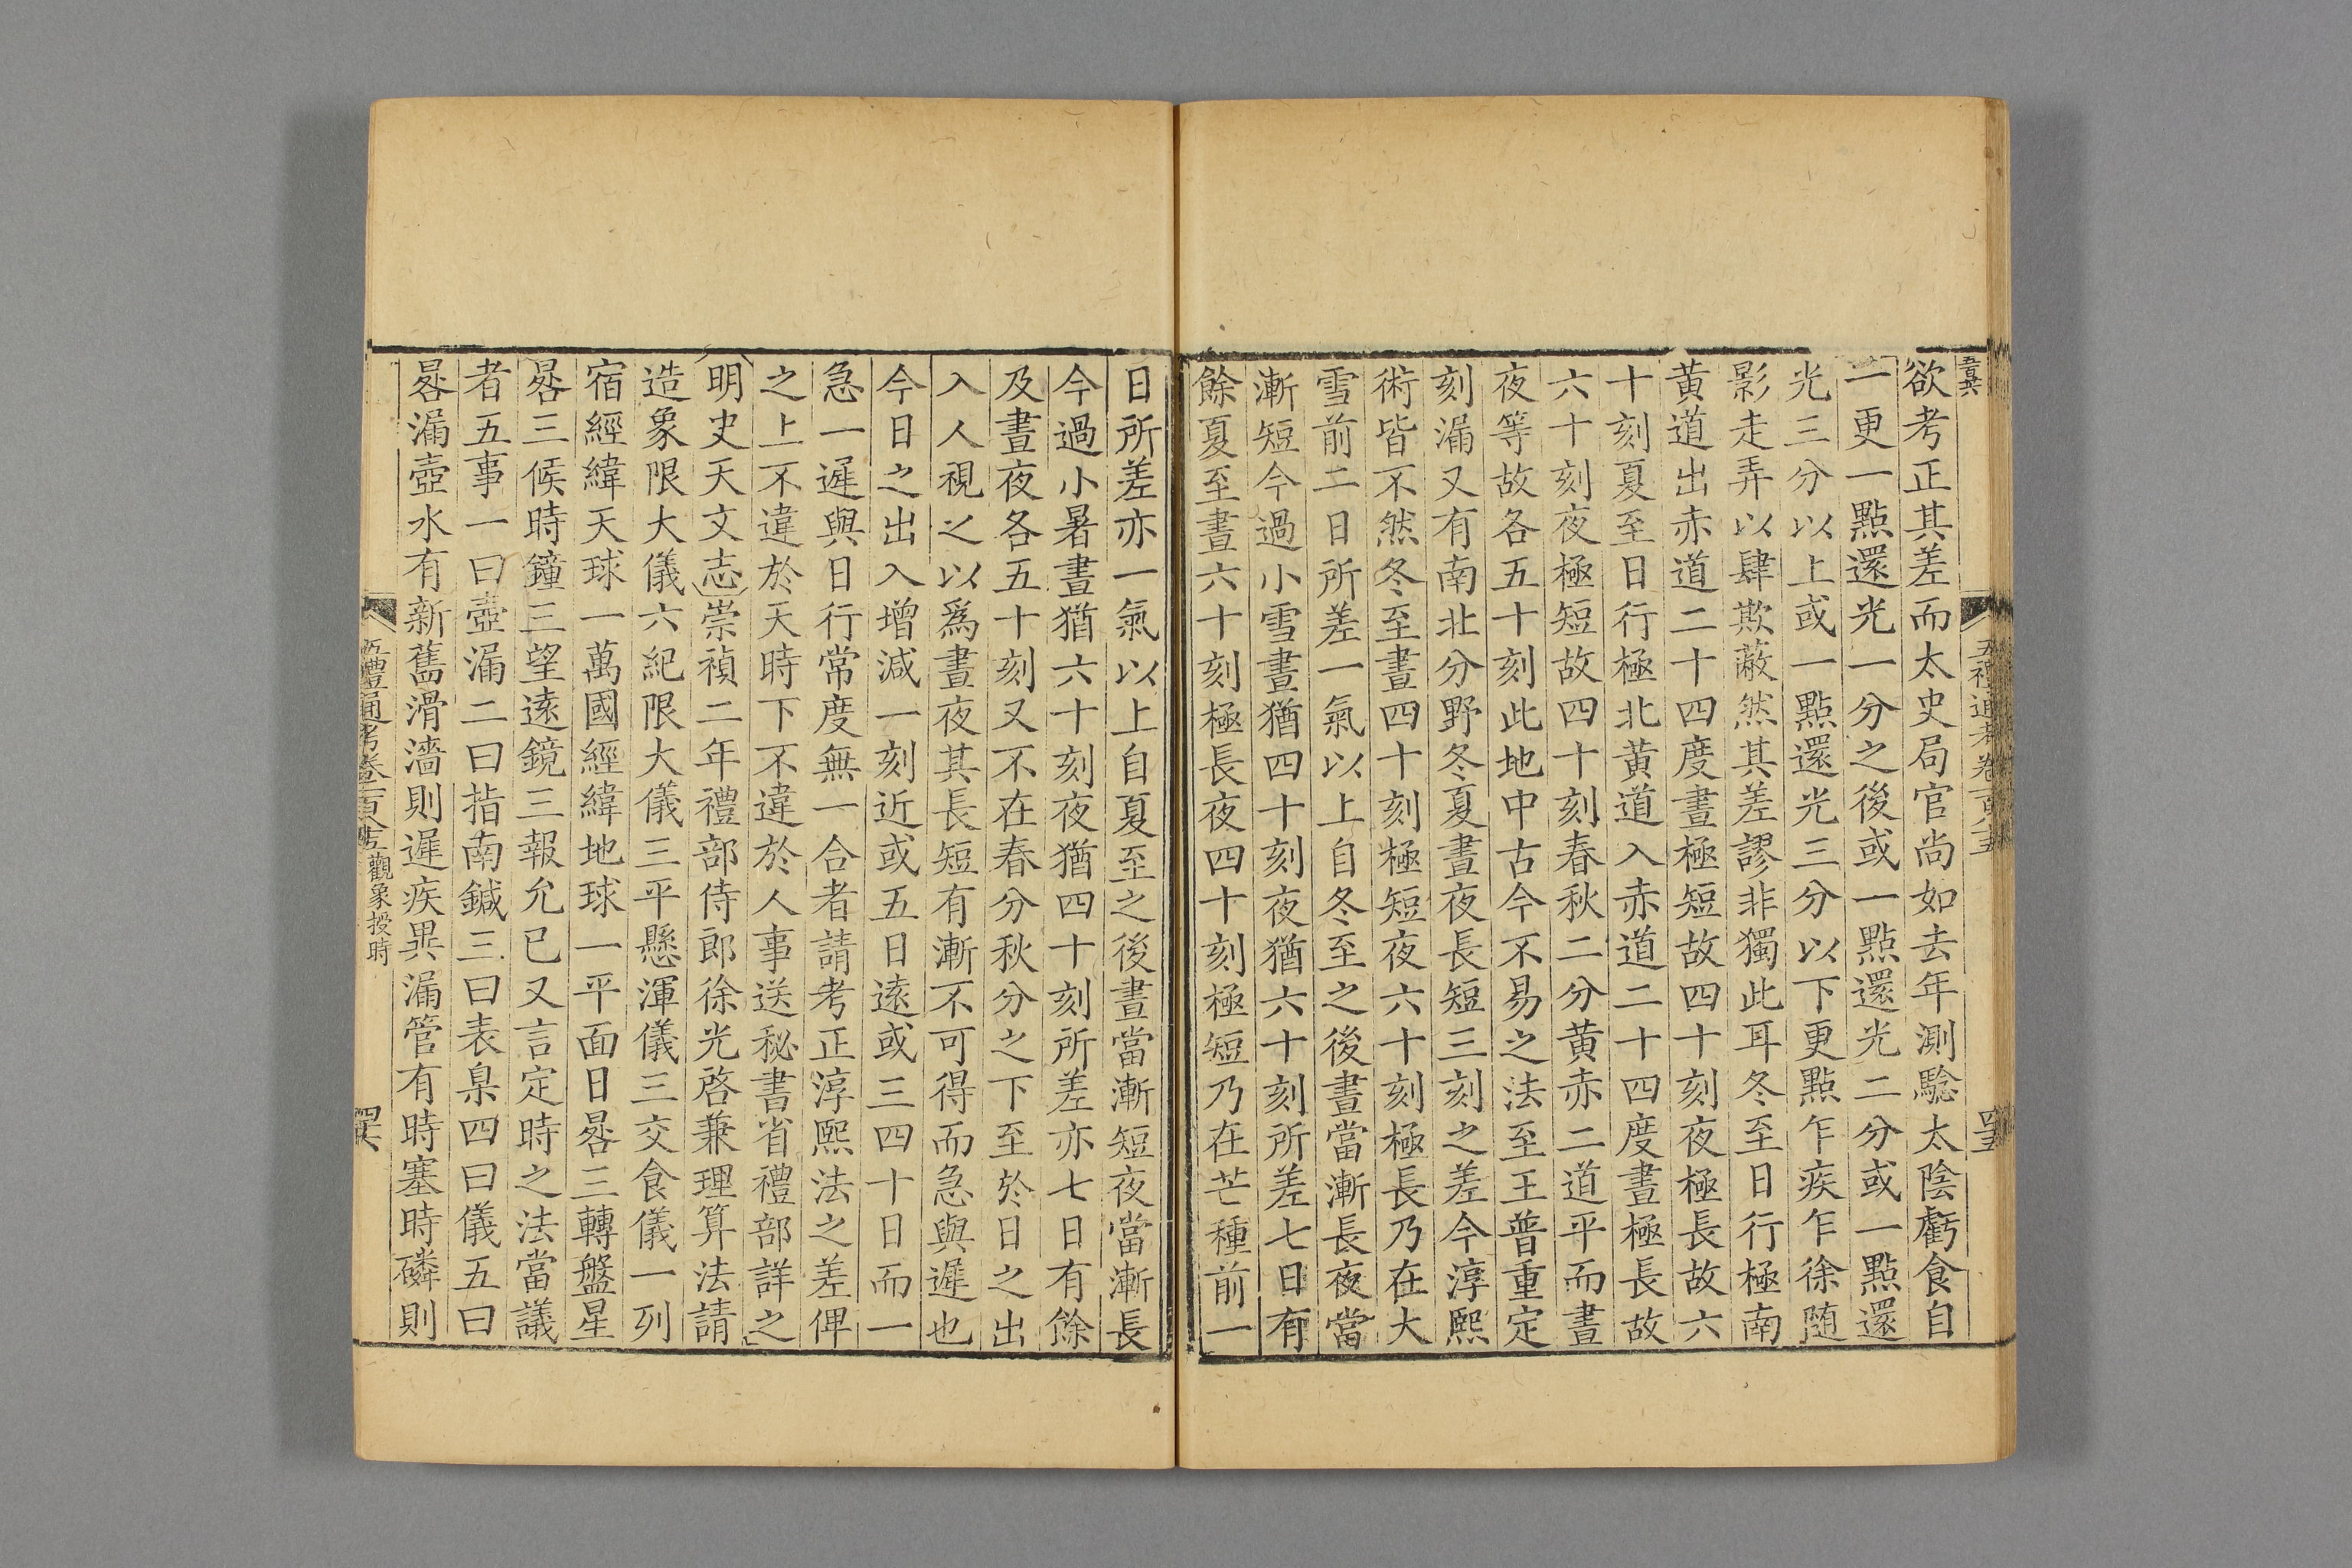 欲考正其差而太史局官尚如去年測驗太陰虧食自
一更一點還光一分之後或一點還光二分或一點還
光三分以上或一點還光三分以下更點乍疾乍徐随
影走弄以肆欺蔽然其差謬非獨此耳冬至日行極南
黄道出赤道二十四度晝極短故四十刻夜極長故六
十刻夏至日行極北黄道入赤道二十四度晝極長故
六十刻夜極短故四十刻春秋二分黄赤二道平而晝
夜等故各五十刻此地中古今不易之法至王普重定
刻漏又有南北分野冬夏晝夜長短三刻之差今淳熙
術皆不然冬至晝四十刻極短夜六十刻極長乃在大
雪前二日所差一氣以上自冬至之後晝當漸長夜當
漸短今過小雪晝猶四十刻夜猶六十刻所差七日有
餘夏至晝六十刻極長夜四十刻極短乃在芒種前一
日所差亦一氣以上自夏至之後晝當漸短夜當漸長
今過小暑晝猶六十刻夜猶四十刻所差亦七日有餘
及晝夜各五十刻又不在春分秋分之下至於日之出
入人視之以爲晝夜其長短有漸不可得而急與遲也
今日之出入增減一刻近或五日遠或三四十日而一
急一遲與日行常度無一合者請考正淳熙法之差俾
之上不違於天時下不違於人事送秘書省禮部詳之
明史天文志崇禎二年禮部侍郎徐光啓兼理算法請
造象限大儀六紀限大儀三平懸渾儀三交食儀一列
宿經緯天球一萬國經緯地球一平面日晷三轉盤星
晷三候時鐘三望遠鏡三報允已又言定時之法當議
者五事一曰壺漏二曰指南鍼三曰表臬四曰儀五曰
晷漏壺水有新舊滑濇則遲疾異漏管有時塞時磷則
五禮通考卷一百 觀象授時